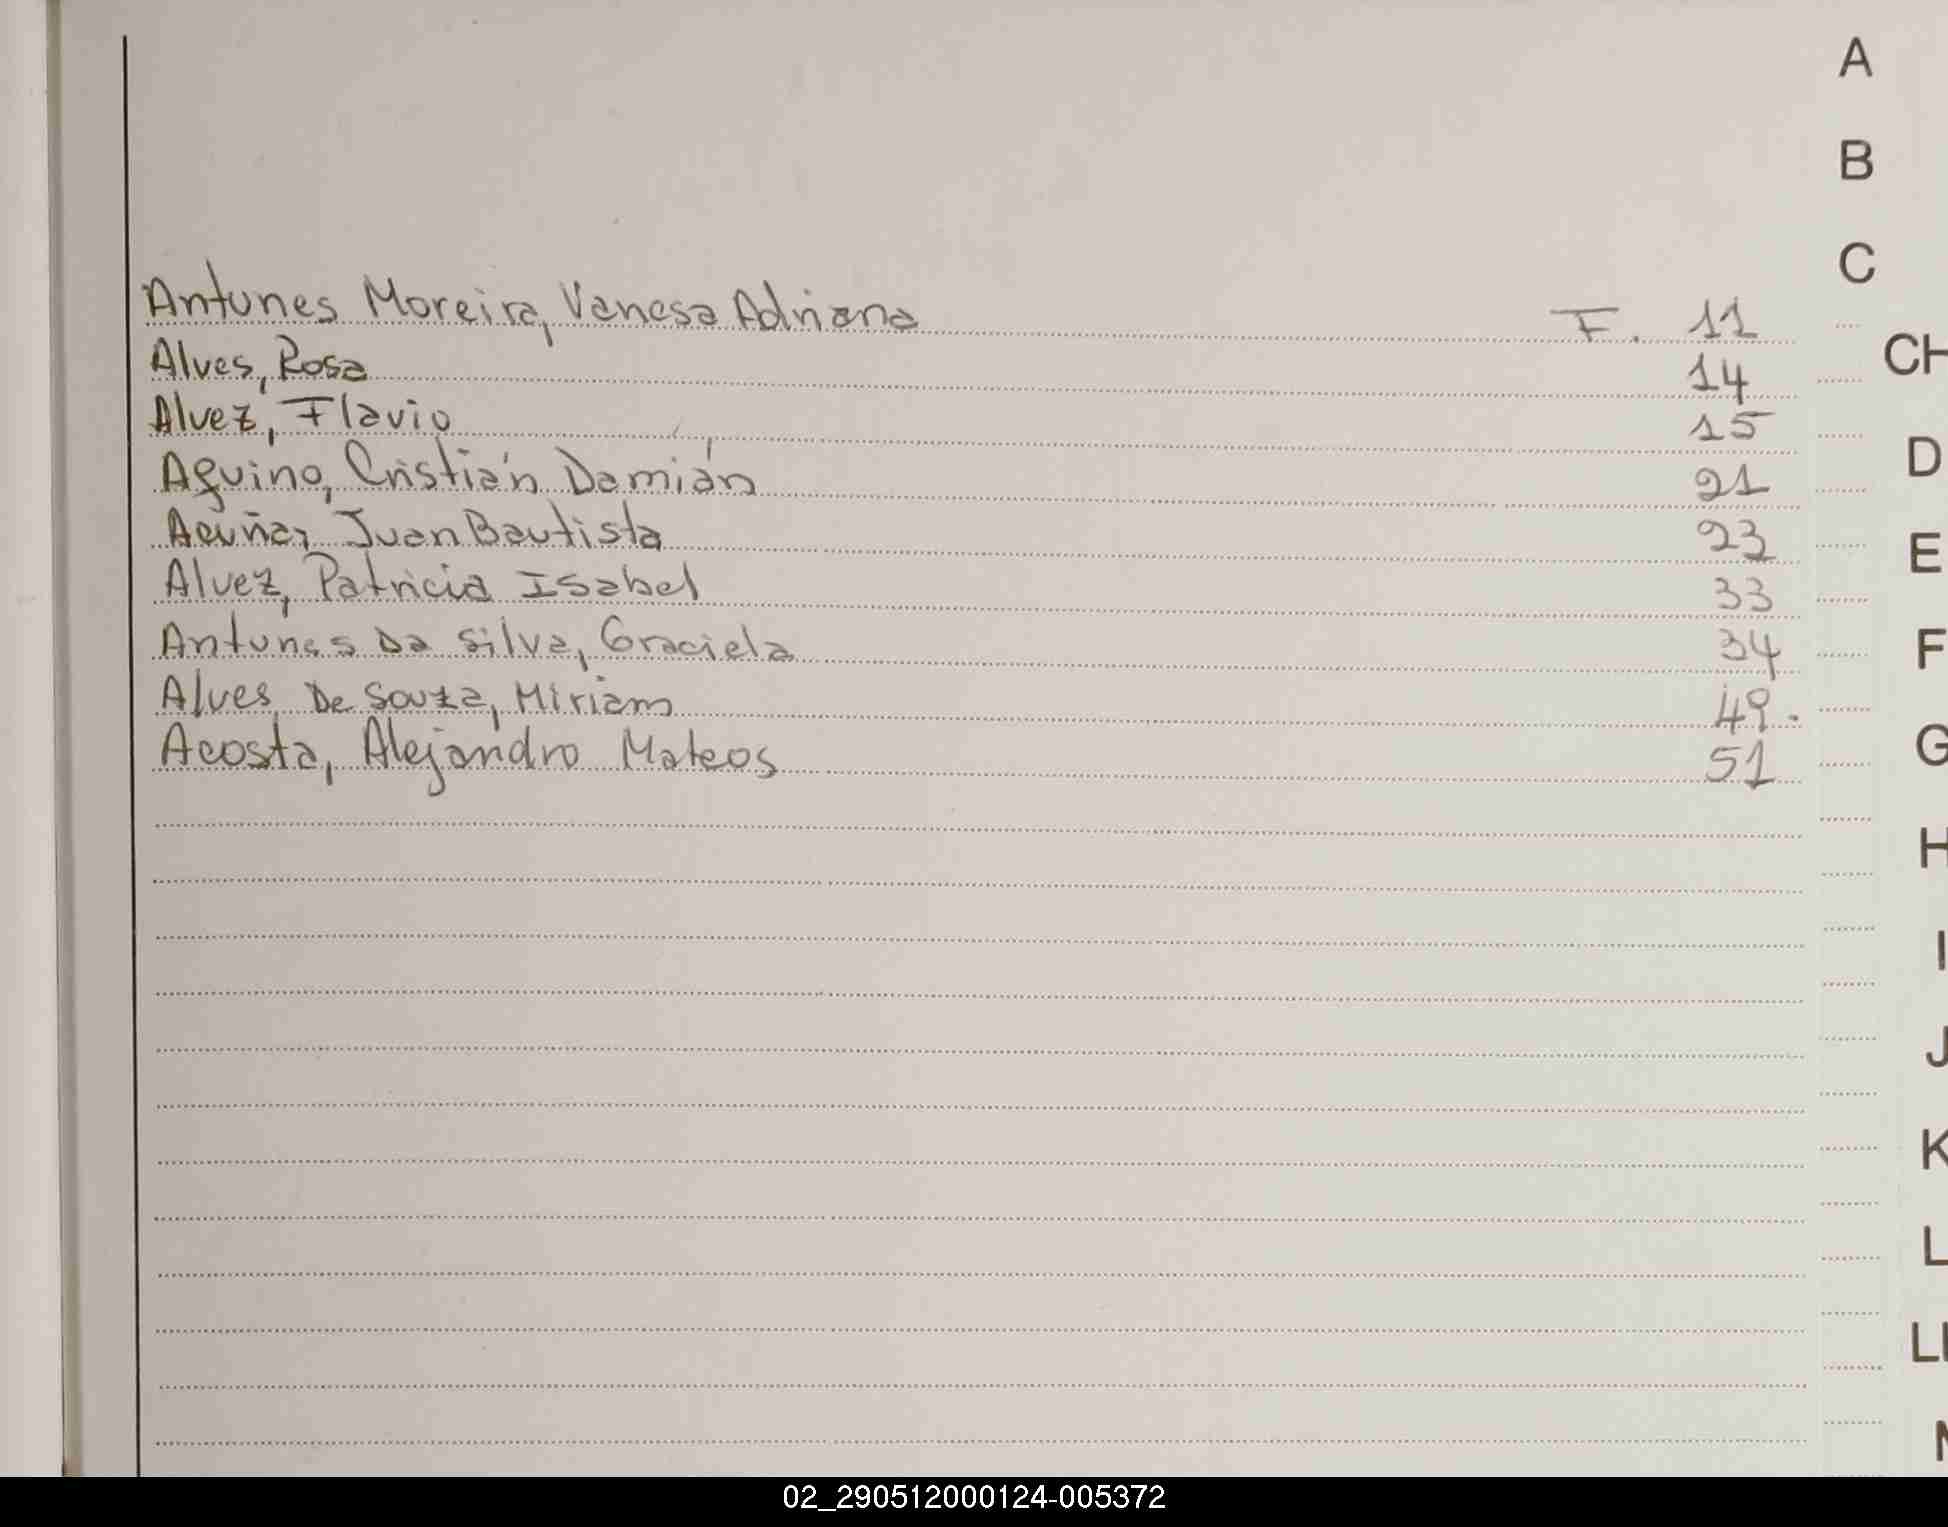 A
B
C
Antunes Moreira, Vanesa Adriana F. 11
CH
Alves, Rosa 14
Alvez, Flavio 15
D
Aquino, Cristián Damián 21
Acuña, Juan Bautista 23
E
Alvez, Patricia Isabel 33
Antunes Da Silva, Graciela 34
F
Alves De Souza, Miriam 49.
G
Acosta, Alejandro Mateos 51
H
I
J
K
L
LL
02_290512000124-005372